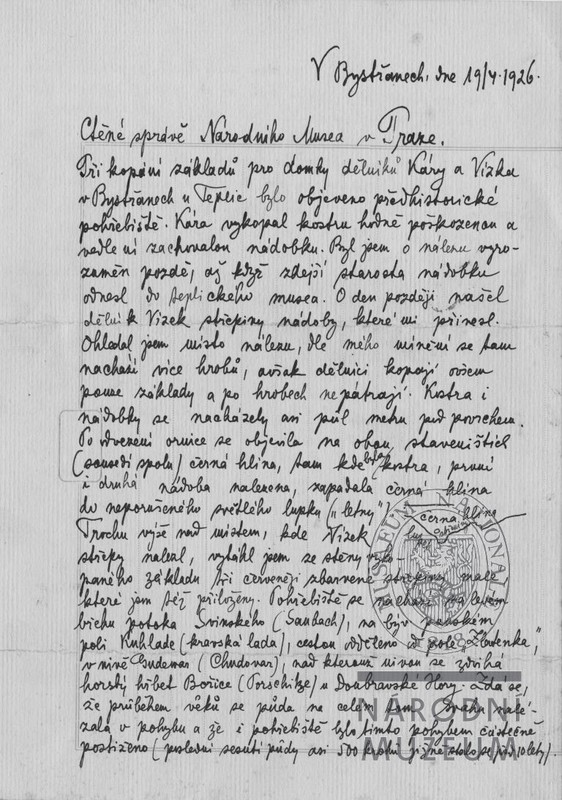 V Bystřanech, dne 19/4.1926.
Ctěné správě Národního Musea v Praze.
Při kopání základů pro domky dělníků Káry a Vízka
v Bystřanech u Teplic bylo objeveno předhistorické
pohřebiště. Kára vykopal kostru hodně poškozenou a
vedle ní zachovalou nádobku. Byl jsem o nálezu vyro-
zuměn pozdě, až když zdejší starosta nádobku
odnesl do teplického musea. O den později našel
dělník Vízek střepiny nádoby, které mi přinesl.
Ohledal jsem místo nálezu, dle mého mínění se tam
nachází více hrobů, avšak dělníci kopají ovšem
pouze základy a po hrobech nepátrají. Kostra i
nádobky se nacházely asi půl metru pod povrchem.
Po odvezení ornice se objevila na obou staveništích
(sousedí spolu) černá hlína, tam kde byla kostra, první
i druhá nádoba nalezena, zapadala černá hlína
do neporušeného světlého lupku ("letny")
černá hlína
Trochu výše nad místem, kde Vízek
střepy nalezl, vytáhl jsem ze stěny vyko-
paného základu tři červeněji zbarvené střepiny malé,
které jsem též přiložil. Pohřebiště se nachází na levém
břehu potoka Svinského (Saubach), na býv. panském
poli Kuhlade (kravská lada), cestou odděleno od pole "Zbotenka",
v nivě Gudewas (Chudovar), nad kterouž nivou se zdvihá
horský hřbet Bořice (Porschitze) u Doubravské Hory. Zdá se,
že průběhem věků se půda na celém tom svahu nalé-
zala v pohybu a že i pohřebiště bylo tímto pohybem částečně
postiženo (poslední sesutí půdy asi 500 kroků jižně stalo se před 10 lety).
MUSEUM NATIONAL
NÁRODNÍ
MUZEUM